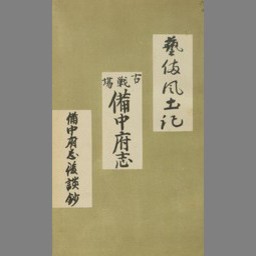 藝俻風土記
古戦場
備中府志
備中府志後談鈔